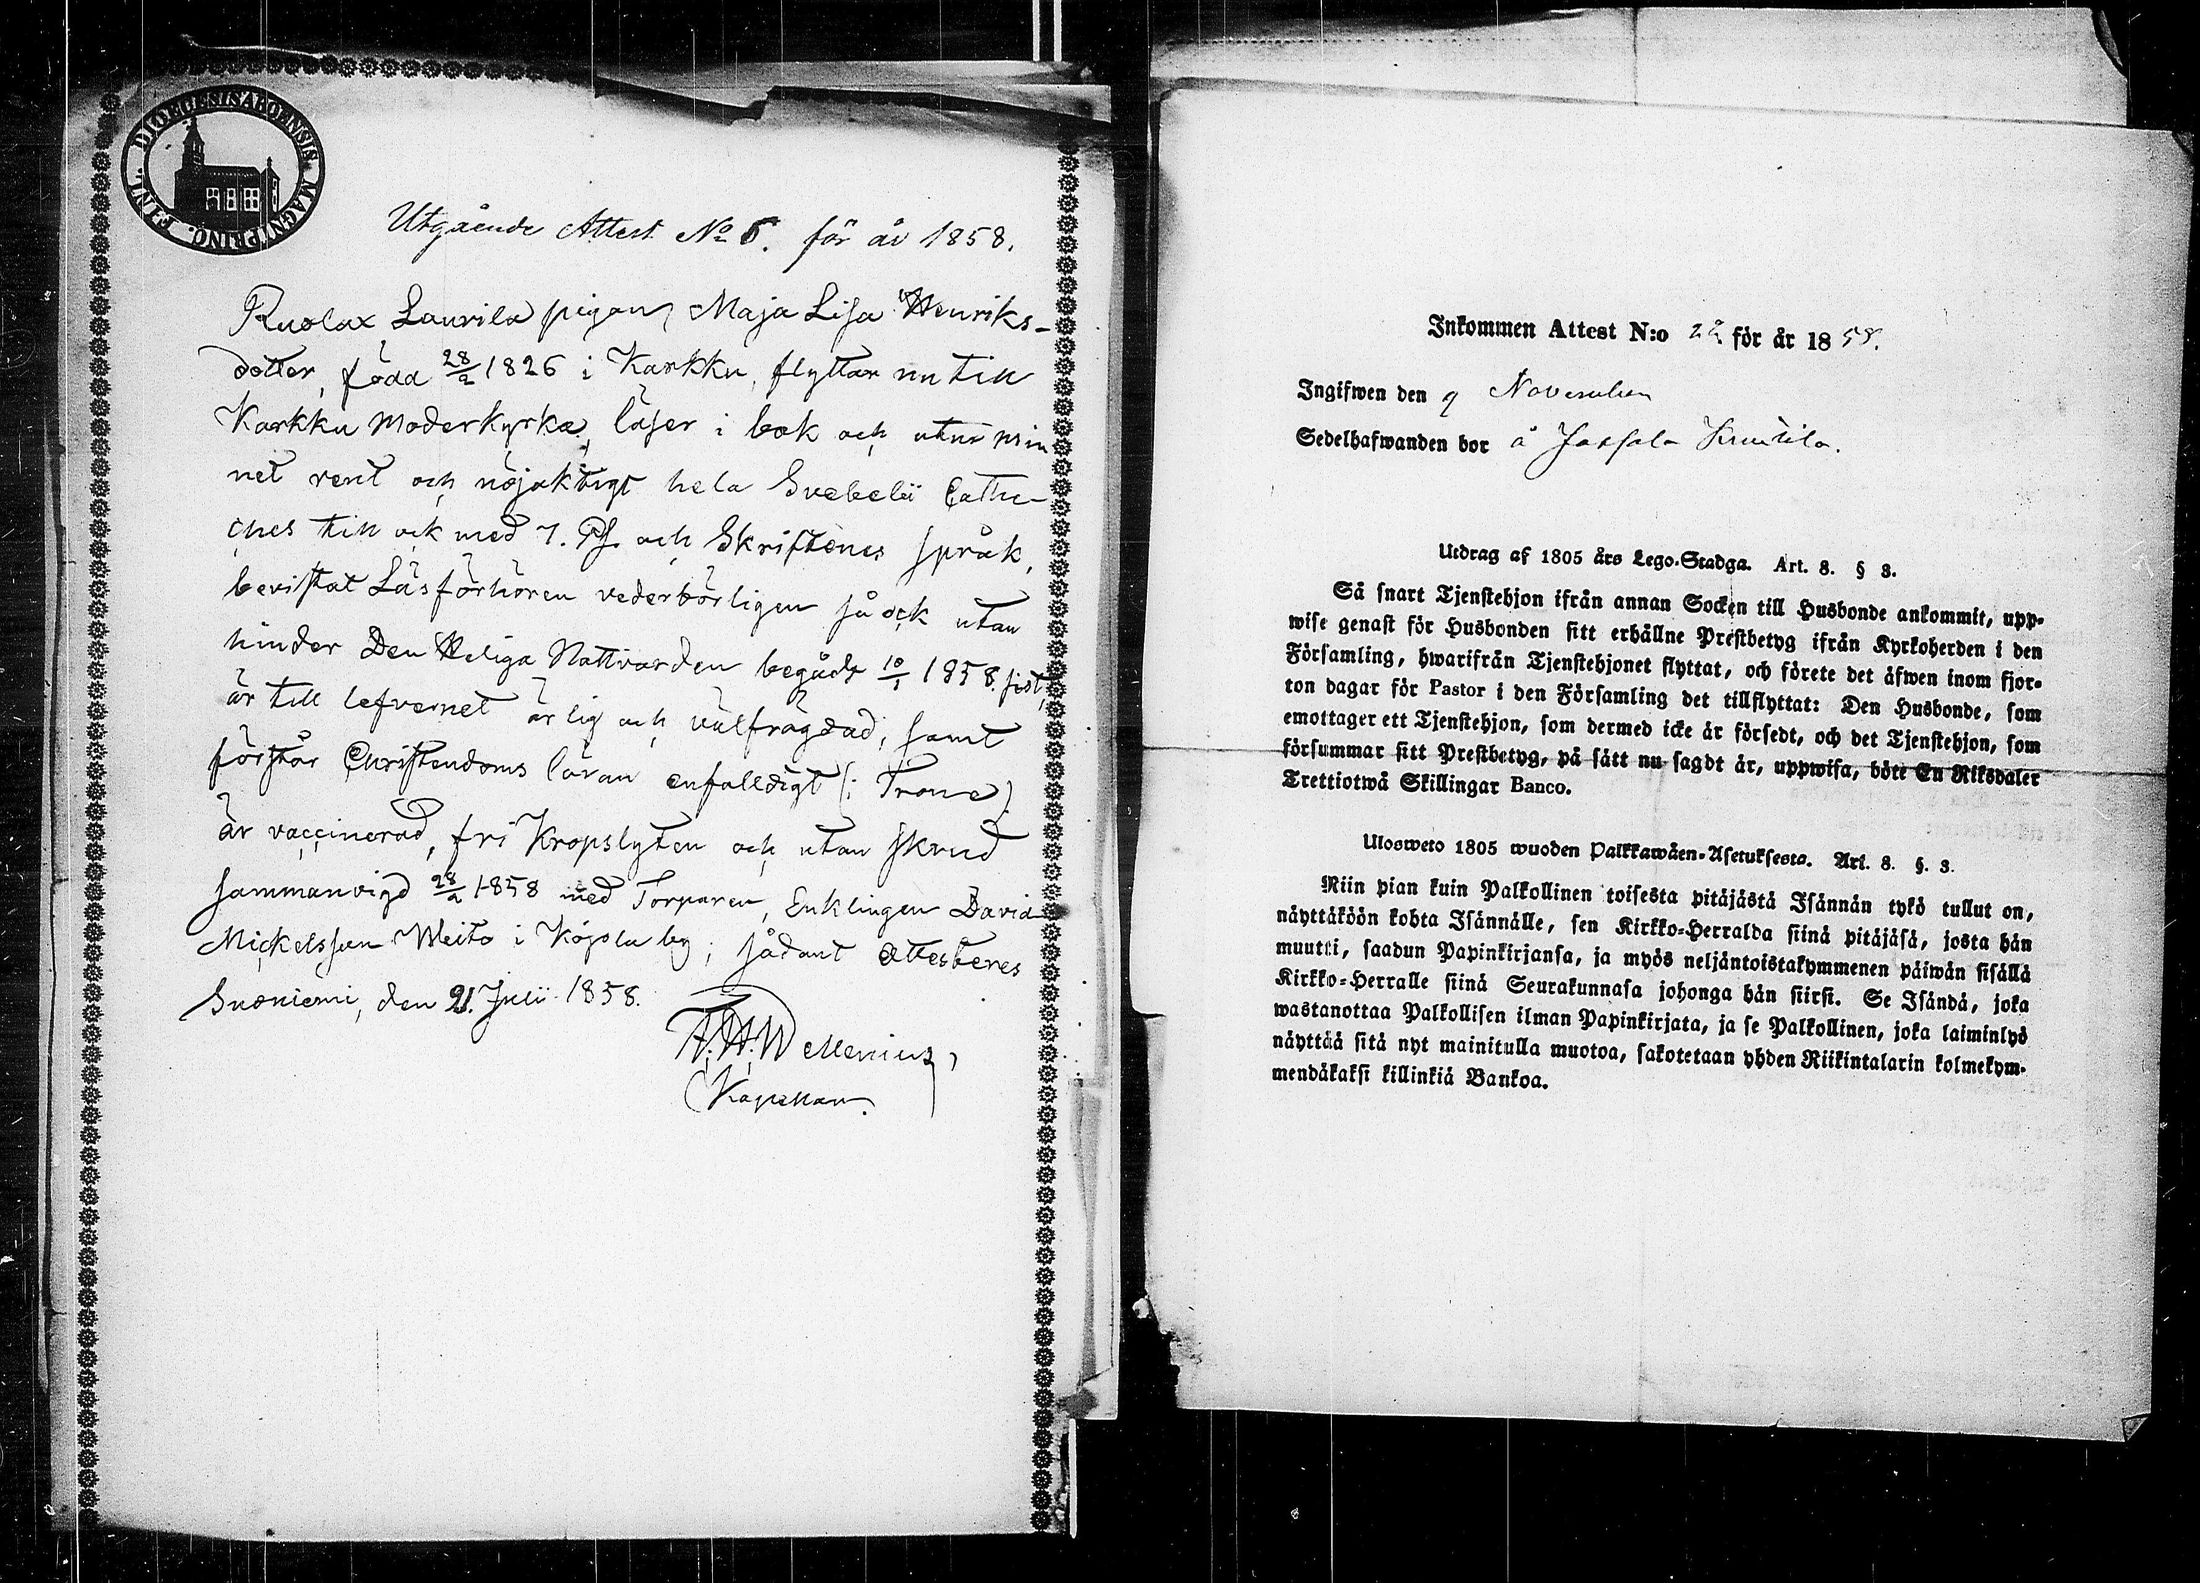 DIOECESIS ABOENSIS MAGNI PRINC. FINL.
Utgående Attest No 6. för år 1858.
Ruolax Laurila pigan Maja Lisa Henriks-
dotter, född 28/2 1826 i Karkku, flyttar nu till
Karkku Moderkyrka, läser i bok och utur min
net rent och nöjaktigt hela Svebelii Cathe-
ches till ock med 7. Ps. och Skriftenes språk,
bevistat Läsförhören vederbörligen så ock utan
hinder Den Heliga Nattvarden begådt 10/1 1858 sist,
är till lefvernet ärlig och välfrägdad, samt
förstår Christendoms läran enfalldigt (: Trone)
är vaccinerad, fri Kropslyten och utan skrud
sammanvigd 28/2 1858 med Torparen, Enklingen David
Mickelsson Weito i Kojola by; sådant attesteres
Suoniemi, den 21. Julii 1858.
F. W. Mellenius,
Kapellan.
Inkommen Attest N:o 22 för år 1858.
Ingifwen den 9 November
Sedelhafwanden bor å
Utdrag af 1805 års Lego-Stadga. Art. 8. § 3.
Så snart Tjenstehjon ifrån annan Socken till Husbonde ankommit, upp-
wise genast för Husbonden sitt erhållne Prestbetyg ifrån Kyrkoherden i den
Församling, hwarifrån Tjenstehjonet flyttat, och förete det äfwen inom fjor-
ton dagar för Pastor i den Församling det tillflyttat: Den Husbonde, som
emottager ett Tjenstehjon, som dermed icke är försedt, och det Tjenstehjon, som
försummar sitt Prestbetyg, på sätt nu sagdt är, uppwisa, böte En Riksdaler
Trettiotwå Skillingar Banco.
Ulosweto 1805 wuoden Palkkawäen-Asetuksesta. Art. 8. §. 3.
Niin pian kuin Palkollinen toisesta pitäjästä Isännän tykö tullut on,
näyttäköön kohta Isännälle, sen Kirkko-Herralda siinä pitäjäsä, josta hän
muutti, saadun Papinkirjansa, ja myös neljäntoistakymmenen päiwän sisällä
Kirkko-Herralle siinä Seurakunnasa johonga hän siirsi. Se Isändä, joka
wastanottaa Palkollisen ilman Papinkirjata, ja se Palkollinen, joka laiminlyö
näyttää sitä nyt mainitulla muotoa, sakotetaan yhden Riikintalarin kolmekym-
mendäkaksi killinkiä Bankoa.